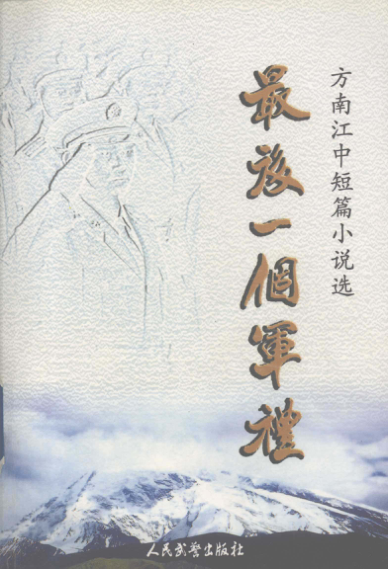 方南江中短篇小说选
最後一個軍禮
人民武警出版社